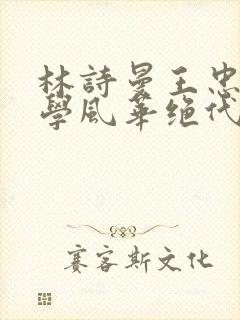 林詩曼王忠
學風華绝代
賽客斯文化